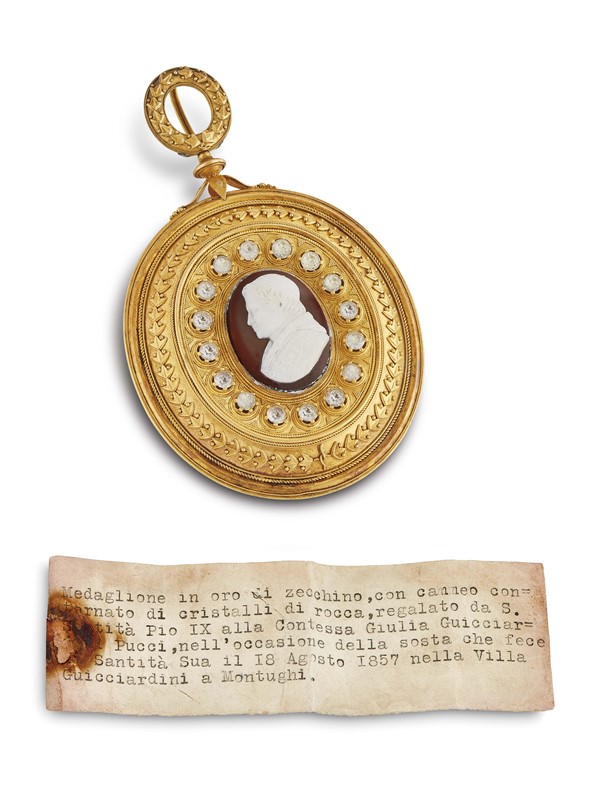 Medaglione in oro di zecchino,con cameo con=
tornato di cristalli di rocca,regalato da S.
tità Pio IX alla Contessa Giulia Guicciar=
Pucci,nell'occasione della sosta che fece
Santità Sua il I8 Agosto I857 nella Villa
Guicciardini a Montughi.